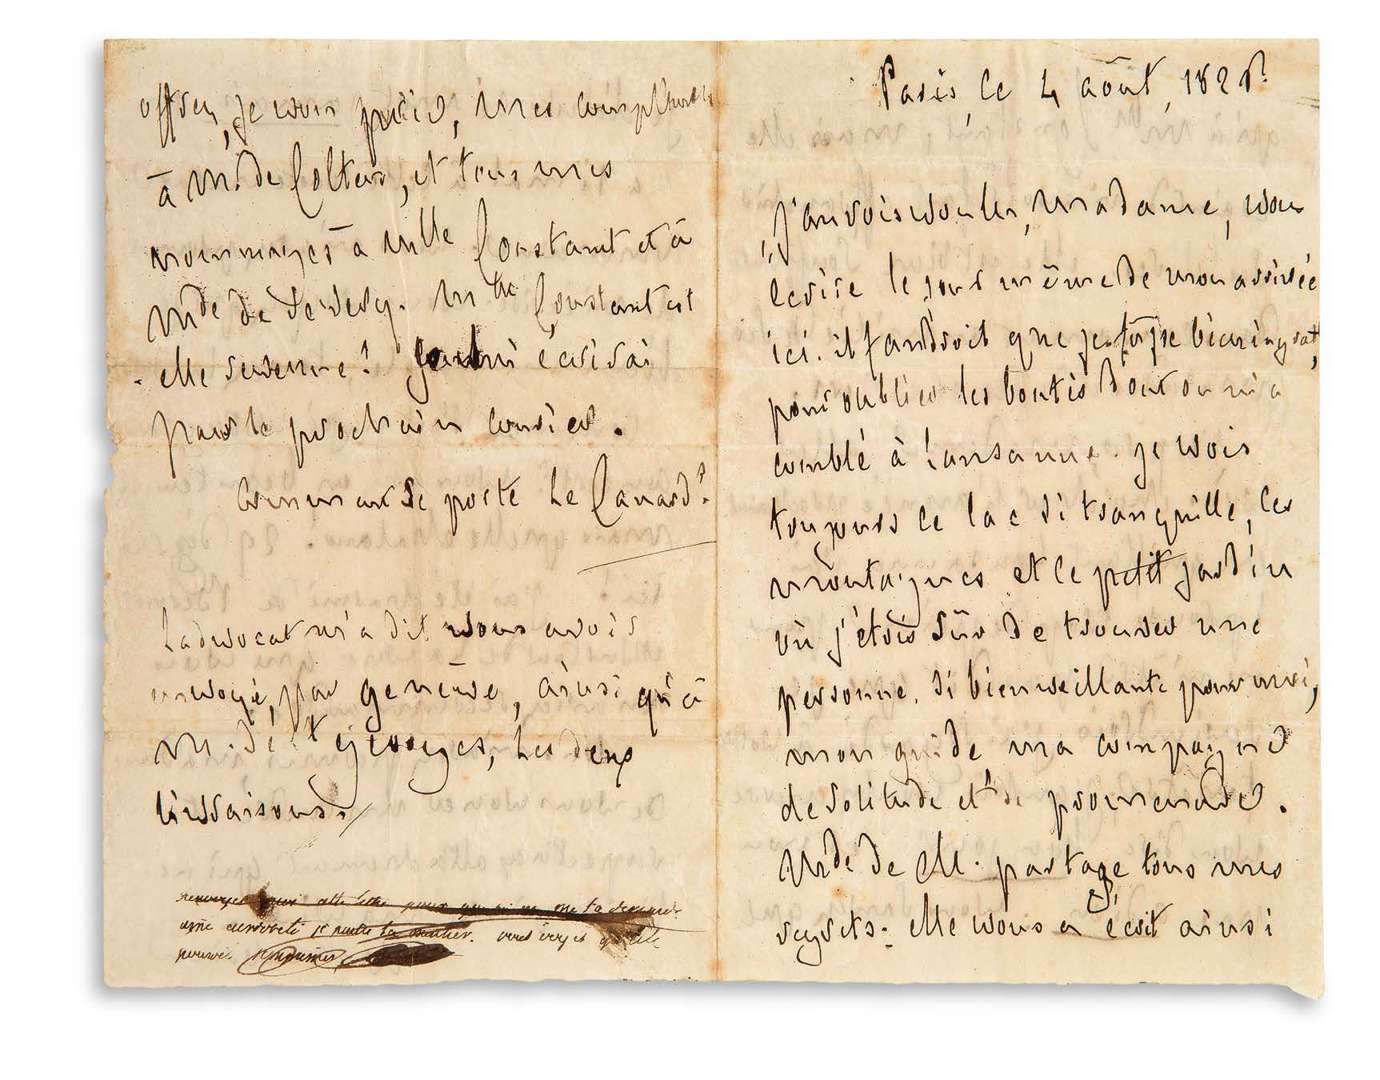 offrez, je vous prie, mes compliments
à Mr. de Cottens, et tous mes
hommages à Mlle Constant et à
Mde de
elle revenue? écrirai
par le prochain courier.
Comment se porte le Canard?
Ladvocat m'a dit vous avoir
envoyé, par Genêve, ainsi qu'à
Mr. de St Georges, les deux
livraisons.
pour cette lettre pour
curiosité je
pouvez
Paris le 4 août, 1826.
J'aurois voulu, Madame, vous
écrire le jour même de mon arrivée
ici. il faudroit que je fusse bien ingrat,
pour oublier les bontés dont on m'a
comblé à Lausanne. je vois
toujours ce lac si tranquille, ces
montagnes et le petit jardin
où j'étois sûr de trouver une
personne si bienveillante pour moi,
mon guide ma compagne
de solitude et de promenades.
Mde de Ch. partage tous mes
regrets. Elle vous a écrit ainsi